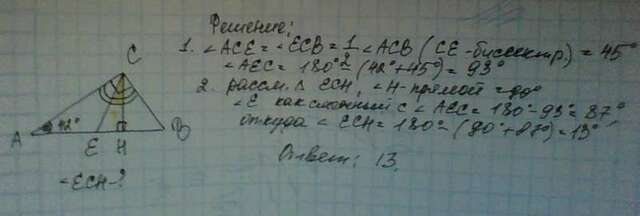 Решение:
1. ∠ACE = ∠ECB = 1/2 ∠ACB (CE - биссектр.) = 45°
∠AEC = 180° - (42° + 45°) = 93°
2. рассм. Δ ECH, ∠H - прямой = 90°
∠E как смежный с ∠AEC = 180° - 93° = 87°,
откуда ∠ECH = 180° - (90° + 87°) = 13°
Ответ: 13.
C
A
42°
E
H
B
∠ECH - ?